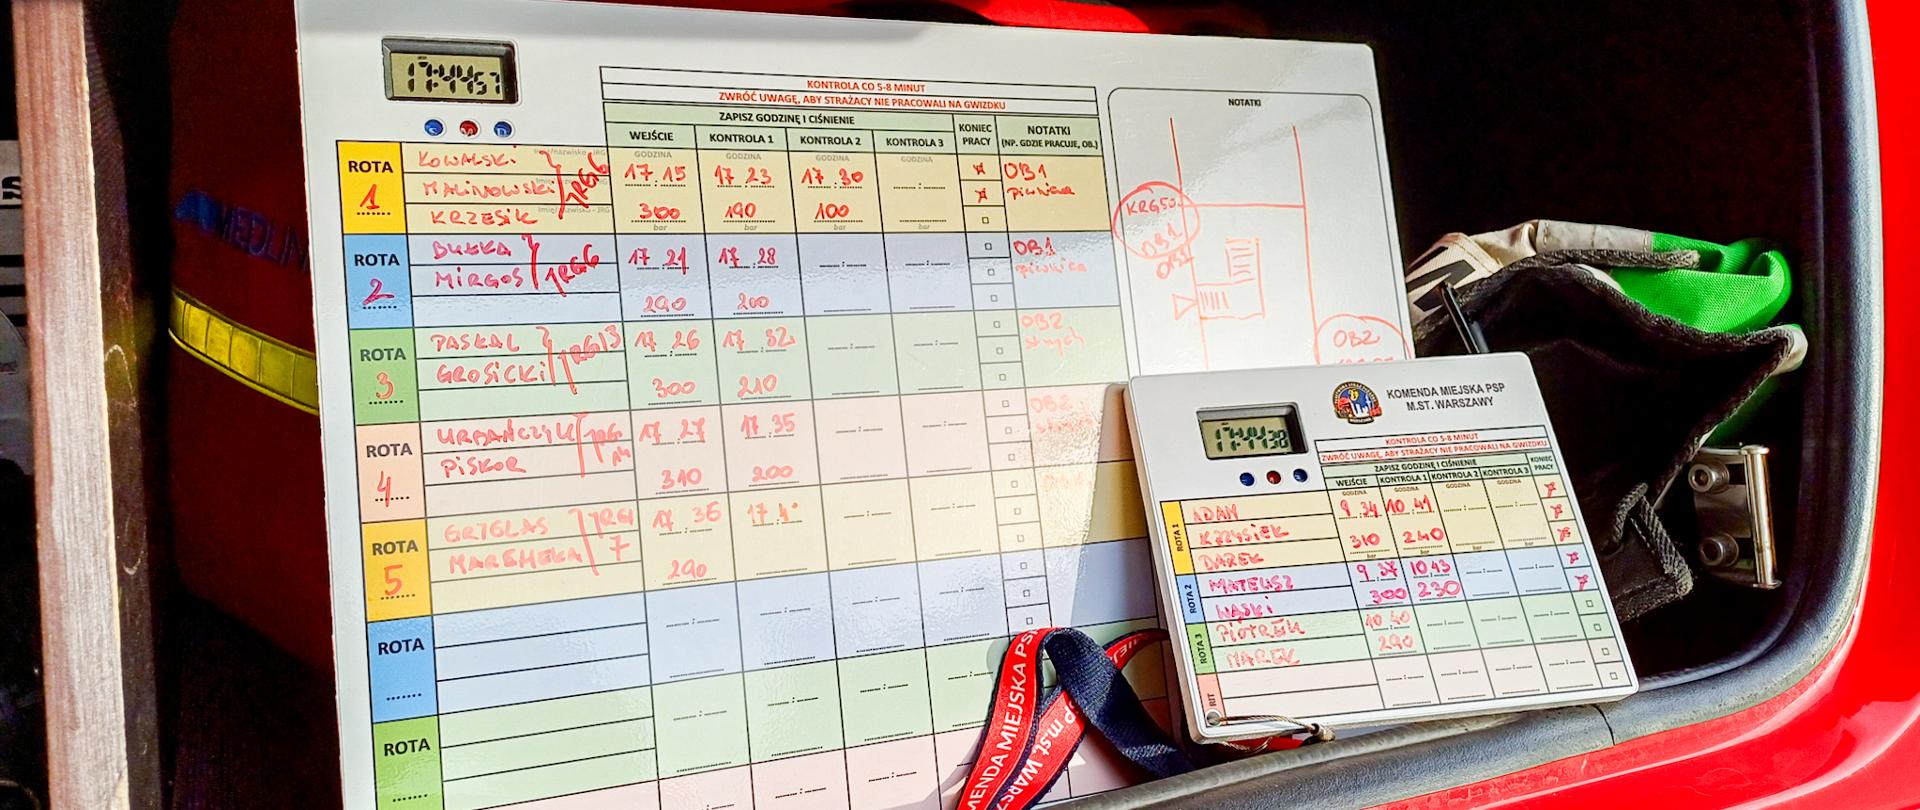 17:44 57
S M D
KONTROLA CO 5-8 MINUT
ZWRÓĆ UWAGĘ, ABY STRAŻACY NIE PRACOWALI NA GWIZDKU
ZAPISZ GODZINĘ I CIŚNIENIE
KONIEC PRACY
NOTATKI
(NP. GDZIE PRACUJE, OB.)
WEJŚCIE KONTROLA 1 KONTROLA 2 KONTROLA 3
GODZINA GODZINA GODZINA GODZINA
ROTA 1
KOWALSKI
MALINOWSKI
KRZESIK
JRG6
17.15 17 23 17.30
300 190 100
bar bar bar bar
OB1
piwnica
ROTA 2
BUŁKA
MIRGOS
JRG6
17 21 17 28
290 200
OB1
piwnica
ROTA 3
PASKAL
GROSICKI
JRG13
17 26 17 32
300 210
OB2
strych
ROTA 4
URBAŃCZYK
PISKOR
JRG
17 27 17 35
310 200
OB2
ROTA 5
GRZELAS
JRG
7
17 36 17 4
290
ROTA
ROTA
NOTATKI
OB1
OB2
KOMENDA MIEJSKA PSP
M.ST. WARSZAWY
17:44 38
KONTROLA CO 5-8 MINUT
ZWRÓĆ UWAGĘ, ABY STRAŻACY NIE PRACOWALI NA GWIZDKU
ZAPISZ GODZINĘ I CIŚNIENIE
KONIEC PRACY
WEJŚCIE KONTROLA 1 KONTROLA 2 KONTROLA 3
GODZINA GODZINA GODZINA GODZINA
ROTA 1
ADAM
KRZYSIEK
DAREK
9 34 10 41
310 240
bar bar bar bar
ROTA 2
MATEUSZ
WĄSKI
9 37 10 43
300 230
ROTA 3
PIOTREK
MAREK
10 40
290
RIT
MENDA MIEJSKA PS
SP m.st. WARSZ
MEDLIN